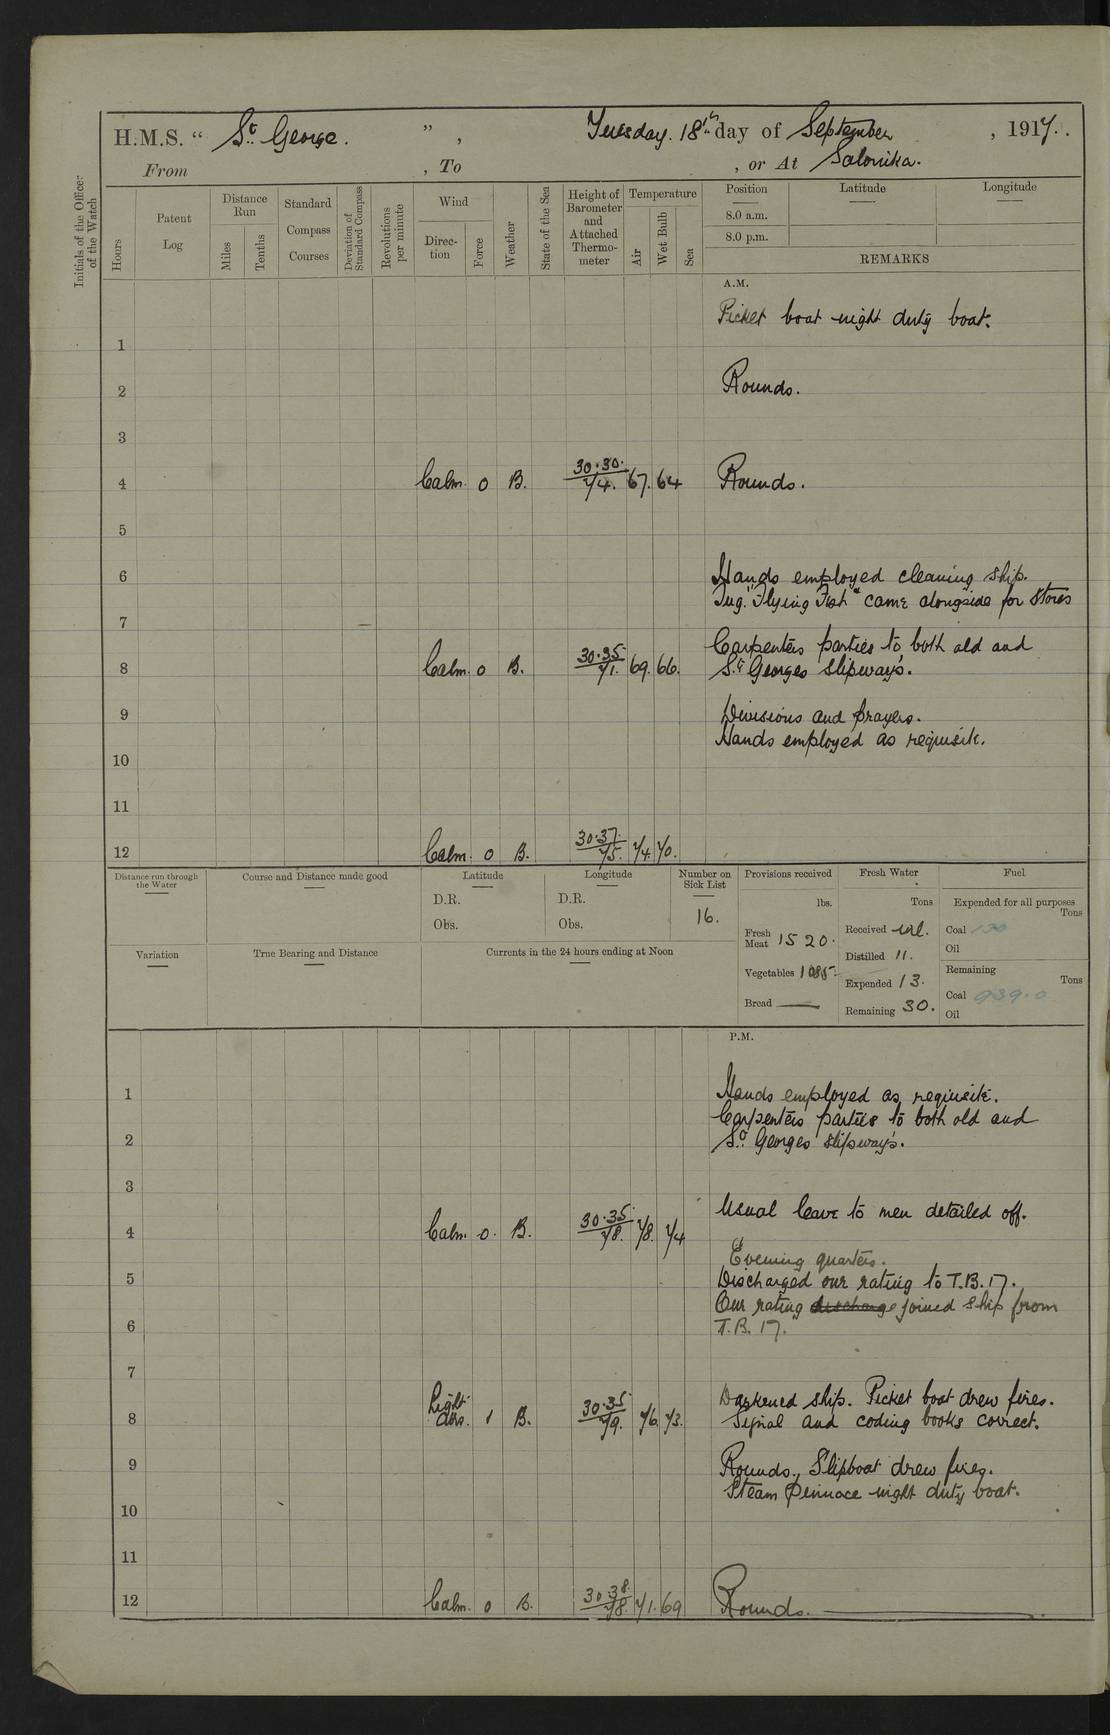 H.M.S. “ St. George. ” , Tuesday. 18th day of September , 1917.
From , To , or At Salonika.
Initials of the Officer of the Watch
Hours
Patent Log
Distance Run
Miles
Tenths
Standard Compass Courses
Deviation of Standard Compass
Revolutions per minute
Wind
Direction
Force
Weather
State of the Sea
Height of Barometer and Attached Thermometer
Temperature
Air
Wet Bulb
Sea
Position
Latitude
Longitude
8.0 a.m.
8.0 p.m.
REMARKS
A.M.
Picket boat night duty boat.
1
2 Rounds.
3
4 Calm. 0 B. 30.30. 74. 67. 64 Rounds.
5
6 Hands employed cleaning ship.
Tug. "Flying Fish" came alongside for stores
7
Carpenters parties to both old and
8 Calm. 0 B. 30.35 71. 69. 66. St. Georges slipways.
9 Divisions and prayers.
Hands employed as requisite.
10
11
12 Calm. 0 B. 30.37. 75. 74. 70.
Distance run through the Water
Course and Distance made good
Latitude
D.R.
Obs.
Longitude
D.R.
Obs.
Number on Sick List
16.
Provisions received
lbs.
Fresh Meat 1520.
Vegetables 1085.
Bread —
Fresh Water
Tons
Received nil.
Distilled 11.
Expended 13.
Remaining 30.
Fuel
Expended for all purposes
Tons
Coal
Oil
Remaining
Tons
Coal 939.0
Oil
Variation
True Bearing and Distance
Currents in the 24 hours ending at Noon
P.M.
1 Hands employed as requisite.
Carpenters parties to both old and
2 St. Georges slipways.
3
Usual leave to men detailed off.
4 Calm. 0. B. 30.35 78. 78. 74
Evening quarters.
5 Discharged one rating to T.B. 17.
One rating discharge joined ship from
6 T.B. 17.
7
Darkened ship. Picket boat drew fires.
8 Light airs. 1 B. 30.35 79. 76. 73. Signal and coding books correct.
9 Rounds., Slipboat drew fires.
Steam pinnace night duty boat.
10
11
12 Calm. 0 B. 30.38. 78. 71. 69 Rounds.